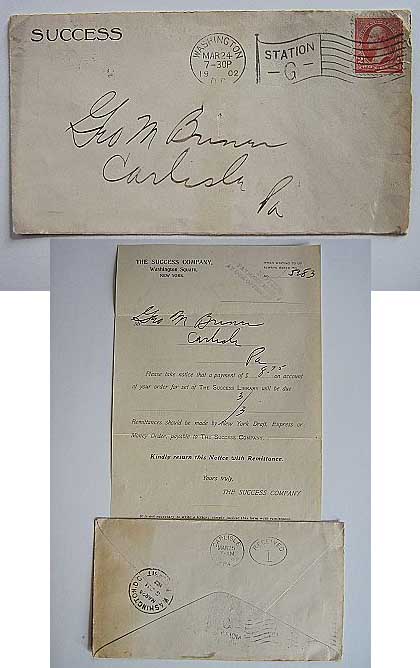 SUCCESS
WASHINGTON
MAR 24
7-30P
19 02
D.C.
STATION
G
Geo M Bruner
Carlisle
Pa
THE SUCCESS COMPANY,
Washington Square,
NEW YORK.
No.
Geo M Bruner
Carlisle
Pa
Please take notice that a payment of $ 8.75 on account
of your order for set of THE SUCCESS LIBRARY will be due
3/3
Remittances should be made by New York Draft, Express or
Money Order, payable to THE SUCCESS COMPANY.
Kindly return this Notice with Remittance.
Yours truly,
THE SUCCESS COMPANY
CARLISLE
PA.
RECEIVED
1
WASHINGTON, D.C.